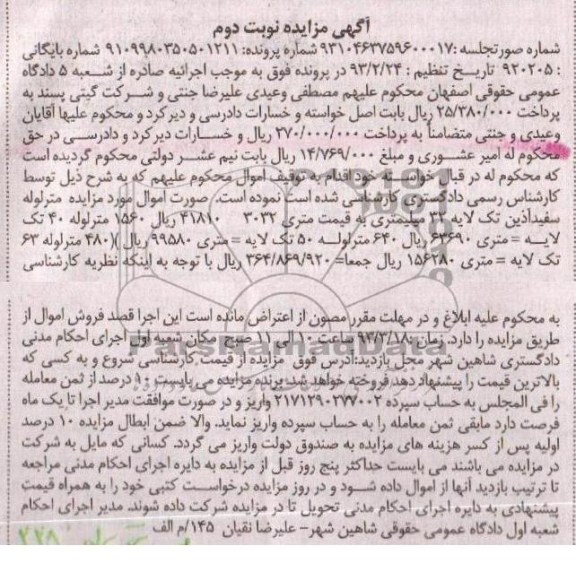 آگهی مزایده نوبت دوم
شماره صورتجلسه: ۹۳۱۰۴۶۳۷۵۹۶۰۰۰۱۷ شماره پرونده: ۹۱۰۹۹۸۰۳۵۰۵۰۱۲۱۱ شماره بایگانی
: ۹۲۰۲۰۵ تاریخ تنظیم : ۹۳/۲/۲۴ در پرونده فوق به موجب اجرائیه صادره از شعبه ۵ دادگاه
عمومی حقوقی اصفهان محکوم علیهم مصطفی وعیدی علیرضا جنتی و شرکت گیتی پسند به
پرداخت ۲۵/۳۸۰/۰۰۰ ریال بابت اصل خواسته و خسارات دادرسی و دیرکرد و محکوم علیها آقایان
وعیدی و جنتی متضامناً به پرداخت ۲۷۰/۰۰۰/۰۰۰ ریال و خسارات دیرکرد و دادرسی در حق
محکوم له امیر عشوری و مبلغ ۱۴/۷۶۹/۰۰۰ ریال بابت نیم عشر دولتی محکوم گردیده است
که محکوم له در قبال خواسته خود اقدام به توقیف اموال محکوم علیهم که به شرح ذیل توسط
کارشناس رسمی دادگستری کارشناسی شده است نموده است. صورت اموال مورد مزایده مترلوله
سفیدآذین تک لایه ۳۲ میلیمتری به قیمت متری ۳۰۳۲ ۴۱۸۱۰ ریال ۱۵۶۰ مترلوله ۴۰ تک
لایه = متری ۶۳۶۹۰ ریال ۶۴۰ مترلوله ۵۰ تک لایه = متری ۹۹۵۸۰ ریال )(۴۸۰ مترلوله ۶۳
تک لایه = متری ۱۵۶۲۸۰ ریال جمعاً= ۳۶۴/۸۶۹/۹۲۰ ریال با توجه به اینکه نظریه کارشناسی
به محکوم علیه ابلاغ و در مهلت مقرر مصون از اعتراض مانده است این اجرا قصد فروش اموال از
طریق مزایده را دارد. زمان: ۹۳/۳/۱۸ ساعت ۱۰ الی ۱۱ صبح مکان شعبه اول اجرای احکام مدنی
دادگستری شاهین شهر محل بازدید:آدرس فوق مزایده از قیمت کارشناسی شروع و به کسی که
بالاترین قیمت را پیشنهاد دهد فروخته خواهد شد. برنده مزایده می بایست ۱۰ درصد از ثمن معامله
را فی المجلس به حساب سپرده ۲۱۷۱۲۹۰۲۷۷۰۰۲ واریز و در صورت موافقت مدیر اجرا تا یک ماه
فرصت دارد مابقی ثمن معامله را به حساب سپرده واریز نماید. والا ضمن ابطال مزایده ۱۰ درصد
اولیه پس از کسر هزینه های مزایده به صندوق دولت واریز می گردد. کسانی که مایل به شرکت
در مزایده می باشند می بایست حداکثر پنج روز قبل از مزایده به دایره اجرای احکام مدنی مراجعه
تا ترتیب بازدید آنها از اموال داده شود و در روز مزایده درخواست کتبی خود را به همراه قیمت
پیشنهادی به دایره اجرای احکام مدنی تحویل تا در مزایده شرکت داده شوند. مدیر اجرای احکام
شعبه اول دادگاه عمومی حقوقی شاهین شهر- علیرضا نقیان ۱۴۵/م الف